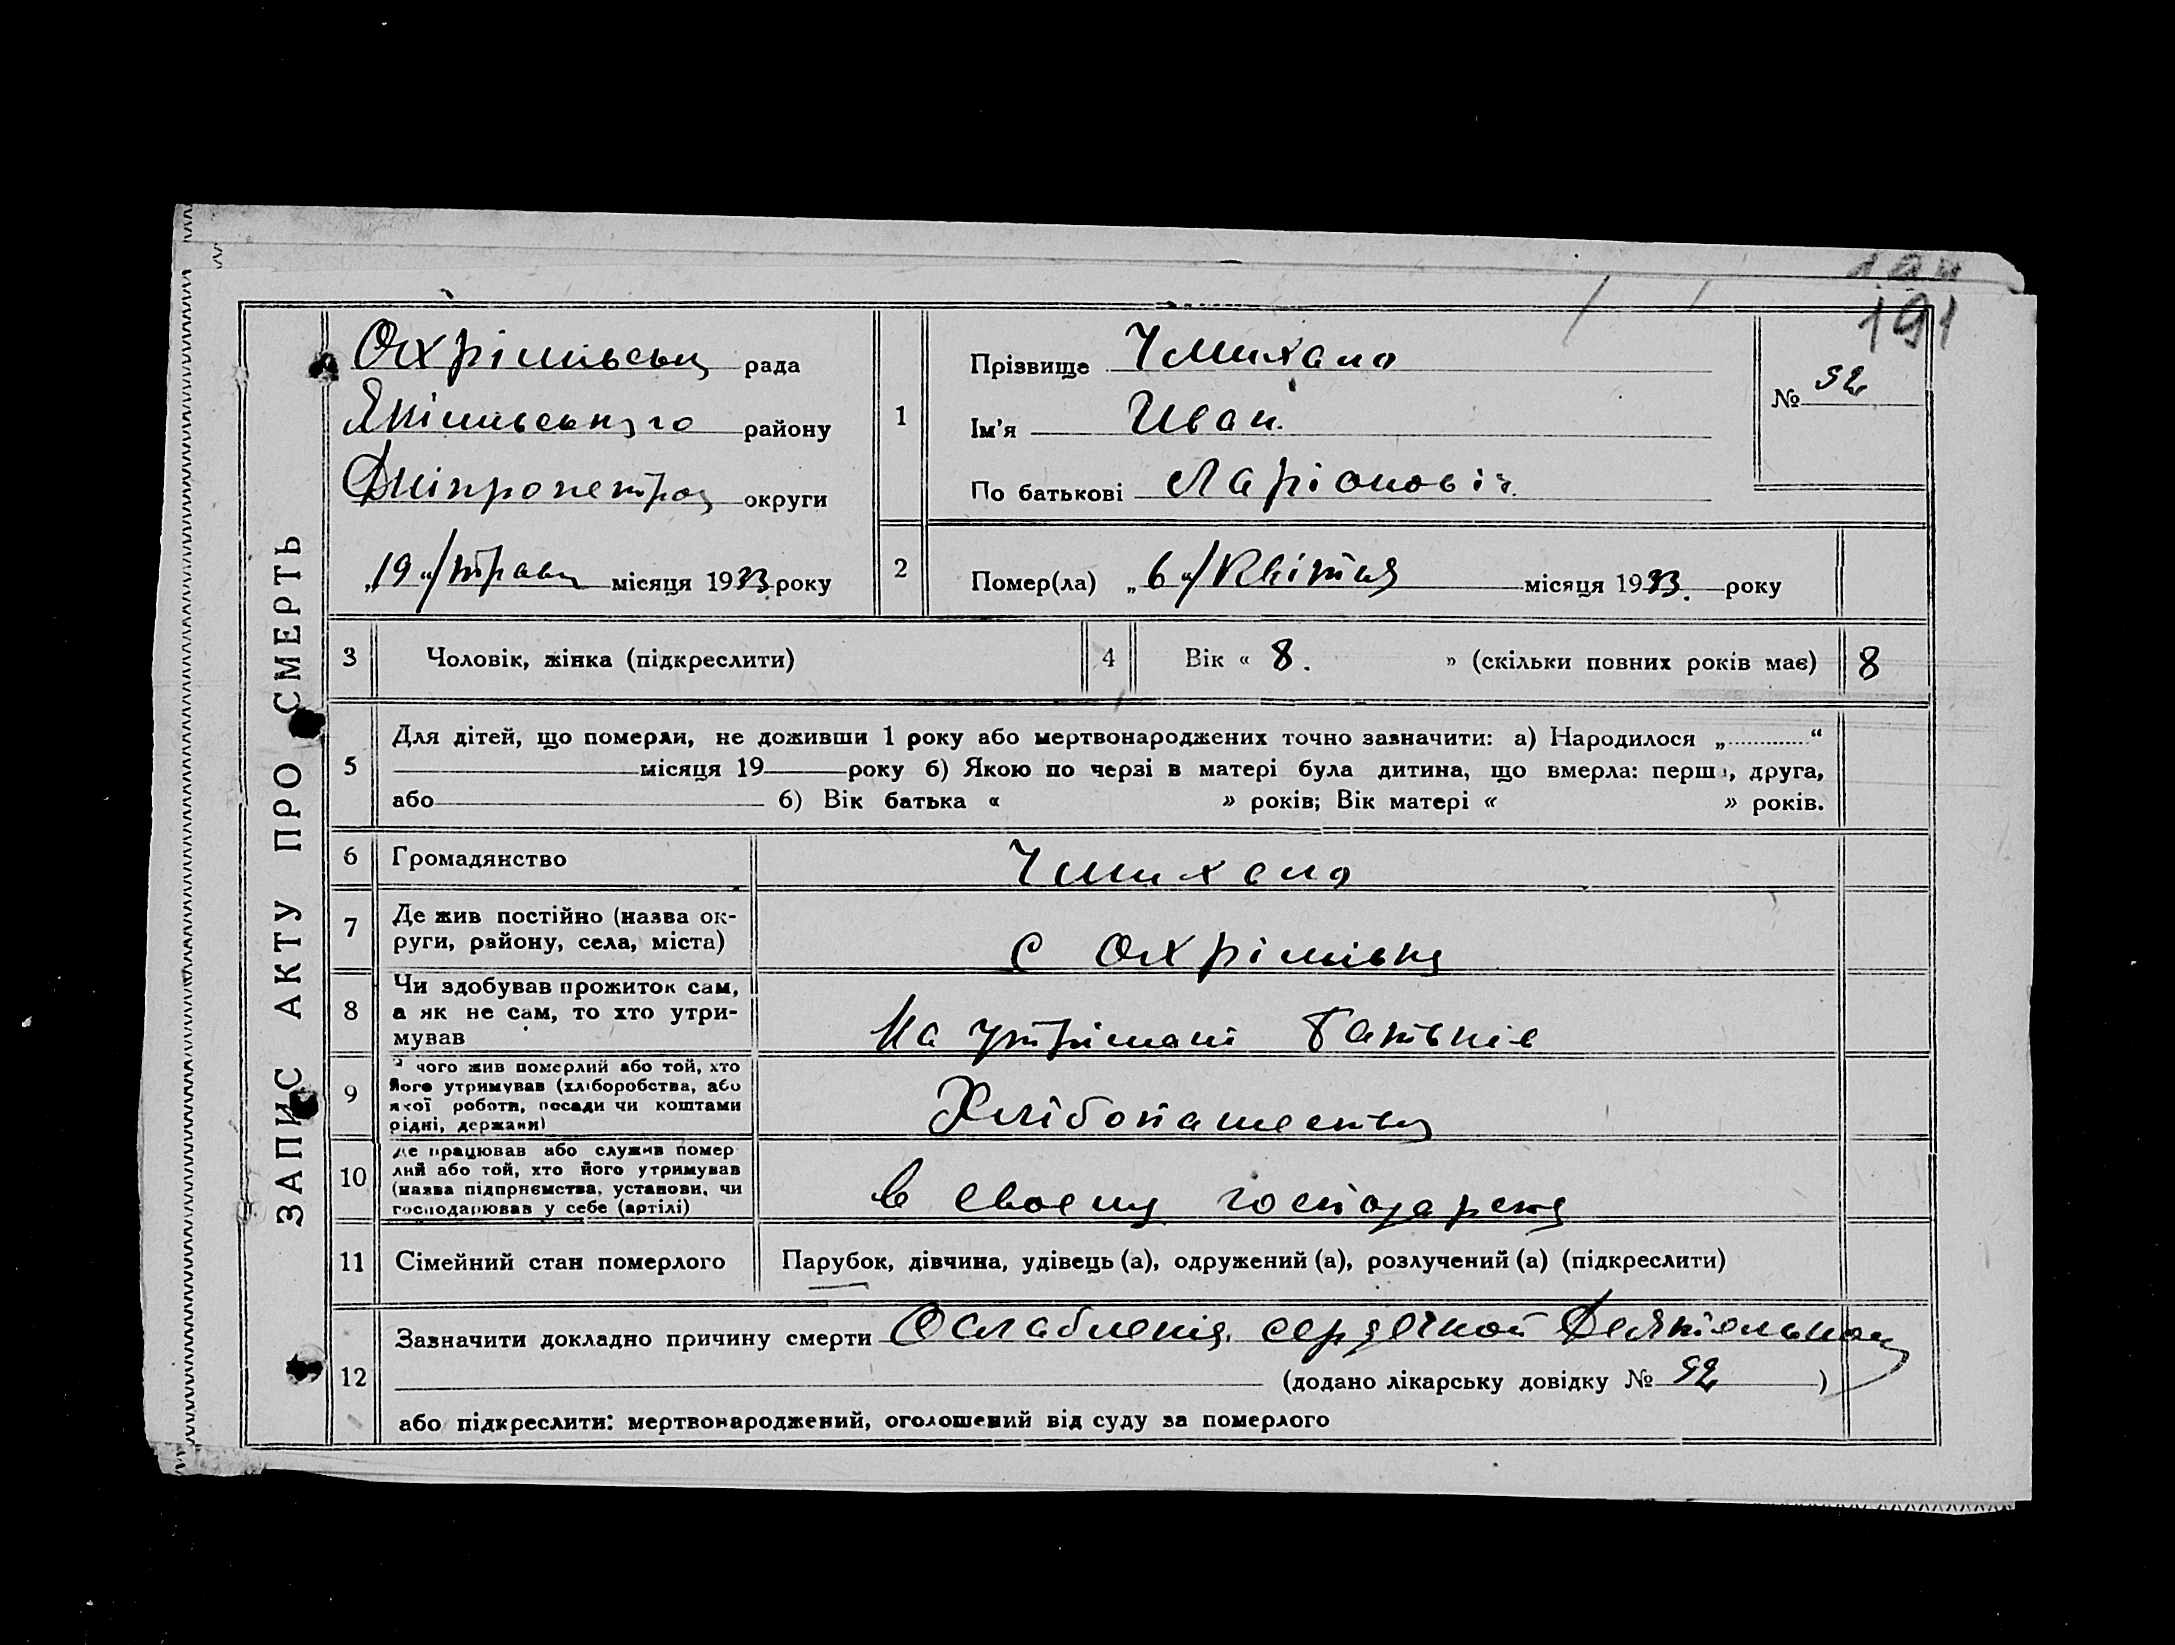 191
ЗАПИС АКТУ ПРО СМЕРТЬ
Охрімівська рада
Якімівського району
Дніпропетров округи
„19“/трав місяця 1933 року
1
Прізвище Чмихало
Ім'я Иван.
По батькові Ларіоновіч.
№ 92
2
Помер(ла) „6“/Квітня місяця 1933. року
3 Чоловік, жінка (підкреслити)
4 Вік « 8. » (скільки повних років має) 8
5 Для дітей, що померли, не доживши 1 року або мертвонароджених точно зазначити: а) Народилося „............“
місяця 19 року б) Якою по черзі в матері була дитина, що вмерла: перша, друга,
або б) Вік батька « » років; Вік матері « » років.
6 Громадянство Чмихало
7 Де жив постійно (назва ок-
руги, району, села, міста)
с Охрімівка
8 Чи здобував прожиток сам,
а як не сам, то хто утри-
мував
На утрімані батьків
9 З чого жив померлий або той, хто
його утримував (хліборобства, або
якої роботи, посади чи коштами
рідні, держави)
Хлібопашество
10 Де працював або служив помер
лий або той, хто його утримував
(назва підприємства, установи, чи
господарював у себе (артілі)
в своему господарстві
11 Сімейний стан померлого Парубок, дівчина, удівець (а), одружений (а), розлучений (а) (підкреслити)
12 Зазначити докладно причину смерти Ослабленія сердечной Деятіельнос
(додано лікарську довідку № 92 )
або підкреслити: мертвонароджений, оголошений від суду за померлого